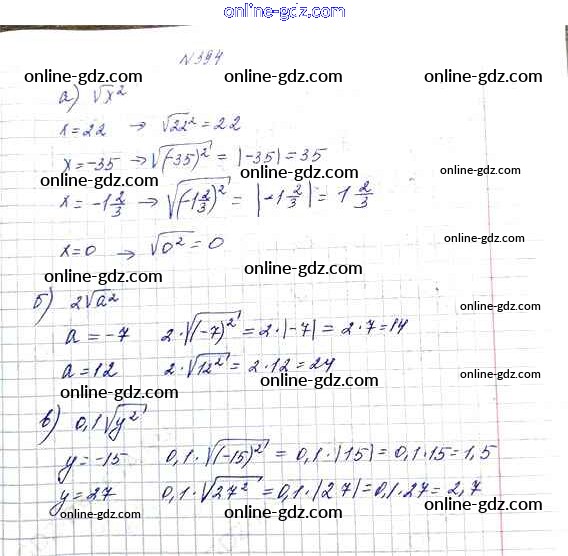 online-gdz.com
N 394
online-gdz.com online-gdz.com online-gdz.com
а) √x²
x = 22 → √22² = 22
online-gdz.com online-gdz.com
x = -35 → √(-35)² = |-35| = 35
online-gdz.com online-gdz.com
x = -1 2/3 → √(-1 2/3)² = |-1 2/3| = 1 2/3
x = 0 → √0² = 0
online-gdz.com
online-gdz.com online-gdz.com
б) 2√a²
online-gdz.com
a = -7 2·√(-7)² = 2·|-7| = 2·7 = 14
online-gdz.com
a = 12 2·√12² = 2·12 = 24
online-gdz.com online-gdz.com online-gdz.com
в) 0,1√y²
online-gdz.com
y = -15 0,1·√(-15)² = 0,1·|15| = 0,1·15 = 1,5
y = 27 0,1·√27² = 0,1·|27| = 0,1·27 = 2,7
online-gdz.com online-gdz.com online-gdz.com online-gdz.com